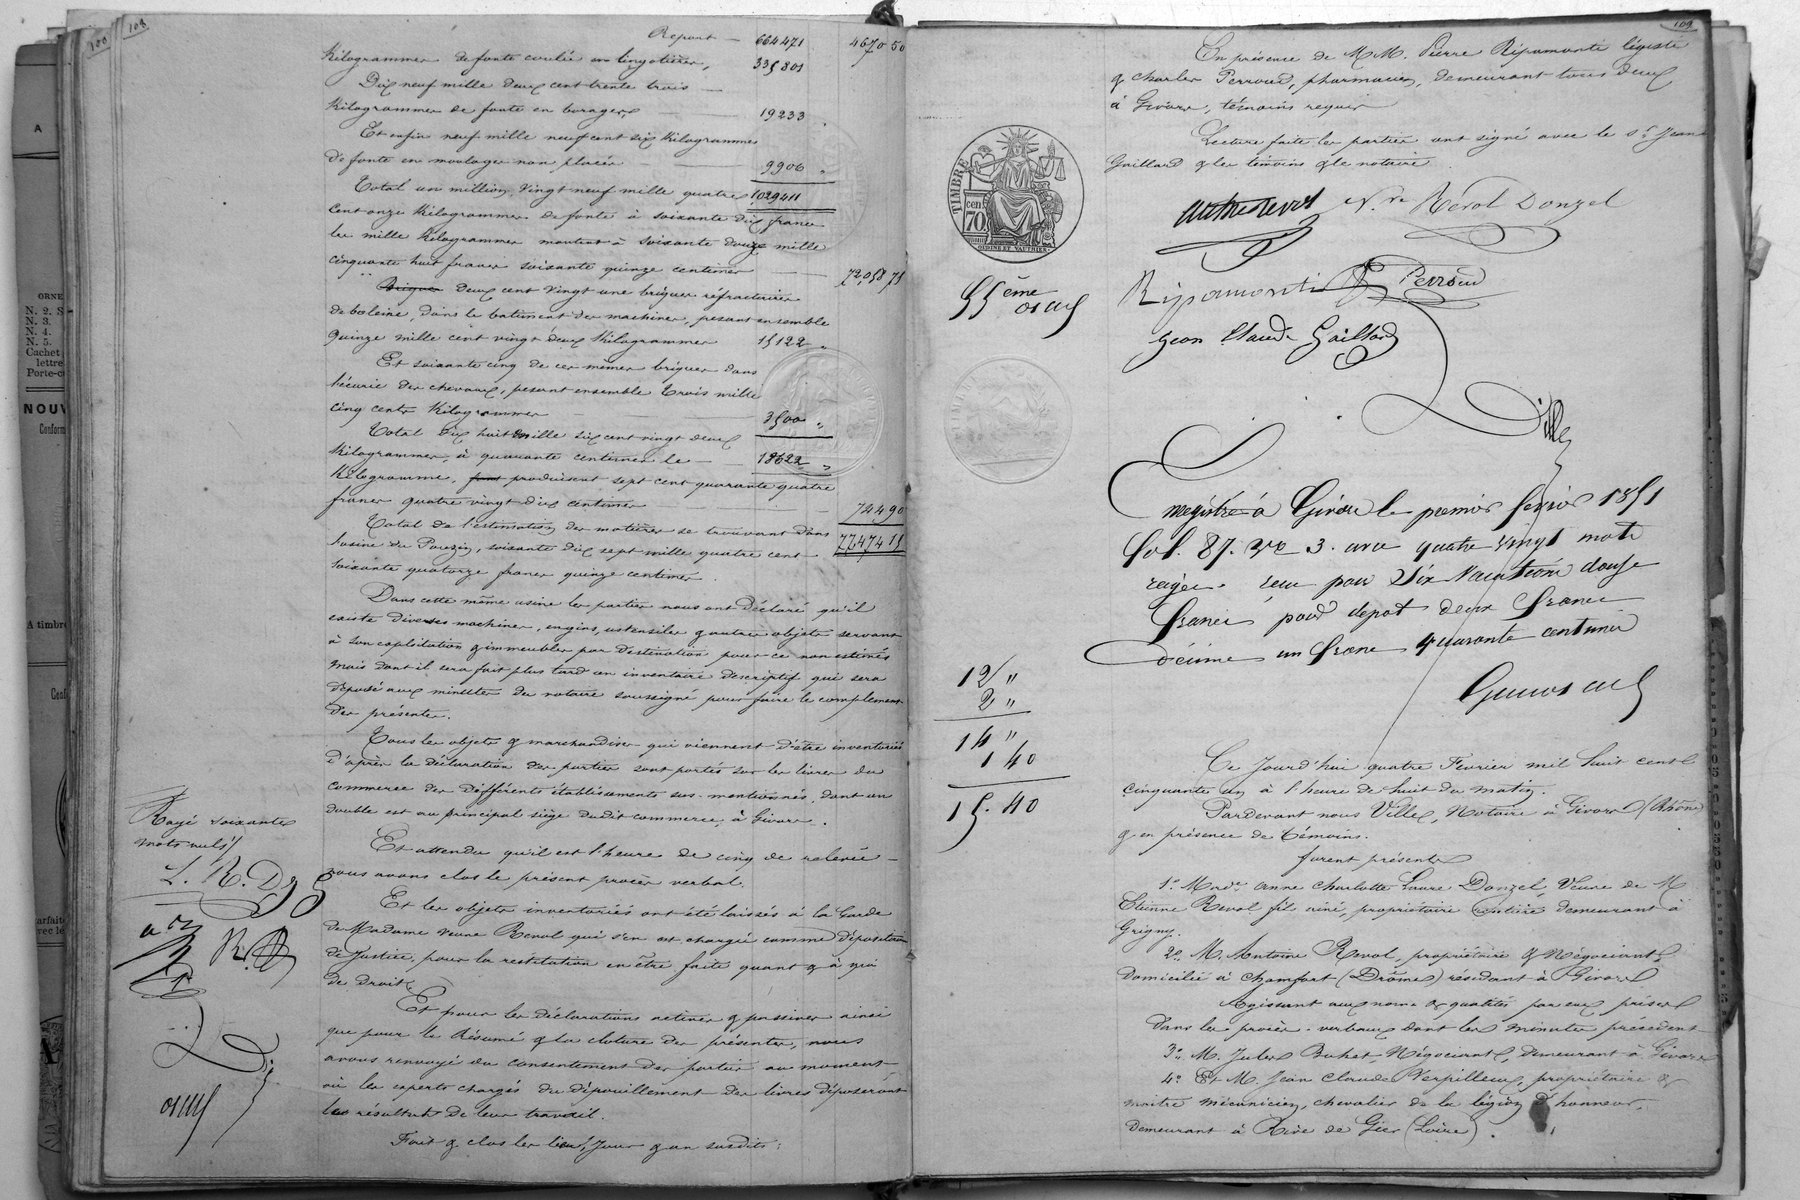 108
Report — 664471 4670 50
Kilogrammes de fonte coulée en lingotières, 335801
Dix neuf mille deux cent trente trois
Kilogrammes de fonte en 19233
Et enfin neuf mille neuf cent six Kilogrammes
de fonte en moulages non placés 9906 "
Total un million vingt neuf mille quatre 1029411
cent onze Kilogrammes de fonte à soixante dix francs
les mille Kilogrammes montent à soixante douze mille
cinquante huit francs soixante quinze centimes 72,058 75
Briques Deux cent vingt une briques réfractaires
de boleine, dans le batiment des machines, pesant ensemble
quinze mille cent vingt deux Kilogrammes 15122 "
Et soixante cinq de ces mêmes briques dans
l'écurie des chevaux, pesant ensemble trois mille
cinq cents Kilogrammes 3500 "
Total dix huit mille six cent vingt deux
Kilogrammes, à quarante centimes le 18622 "
Kilogramme, font produisent sept cent quarante quatre
francs quatre vingt dix centimes 744 90
Total de l'estimation des matières se trouvant dans
l'usine du Pouzin, soixante dix sept mille quatre cent 77474 15
soixante quatorze francs quinze centimes.
Dans cette même usine les parties nous ont déclaré qu'il
existe diverses machines, engins, ustensiles & autres objets servant
à son exploitation & immeubles par destination pour ce non estimés
mais dont il sera fait plus tard un inventaire descriptif qui sera
déposé aux minutes du notaire soussigné pour faire le complément
des présentes.
Tous les objets & marchandises qui viennent d'être inventoriés
d'après la déclaration des parties sont portés sur les livres du
commerce des différents établissements sus-mentionnés, dont un
double est au principal siège dudit commerce, à Givors.
Et attendu qu'il est l'heure de cinq de relevée
nous avons clos le présent procès verbal.
Et les objets inventoriés ont été laissés à la Garde
de Madame veuve Revol qui s'en est chargée comme dépositaire
de Justice, pour la restitution en être faite quant & à qui
de droit.
Et pour les déclarations actives & passives ainsi
que pour le Résumé & la cloture des présentes, nous
avons renvoyé du consentement des parties au moment
où les experts chargés du dépouillement des livres déposeront
les résultats de leur travail.
Fait & clos les lieu, jour & an susdits;
Rayé soixante
mots nuls
109
En présence de MM. Pierre Ripamonti légiste
& Charles Perroud, pharmacien, demeurant tous deux
à Givors, témoins requis
Lecture faite les parties ont signé avec le Sr Jean
Gaillard & les témoins & le notaire
TIMBRE
70 cen
Vve Revol Donzel
Ripamonti Perroud
Jean Claude Gaillard
55ème
Enregistré à Givors le premier février 1851
fol. 87. Vo 3. avec quatre vingt mots
rayés. reçu pour Six Vacations douze
francs pour depot deux francs
décime un franc quarante centimes
12 "
2 "
14 "
1 40
15. 40
Ce jourd'hui quatre Février mil huit cent
cinquante un à l'heure de huit du matin.
Pardevant nous Ville, Notaire à Givors (Rhône)
& en présence de témoins.
furent présents
1o. Mad. Anne Charlotte Laure Donzel, Veuve de M.
Etienne Revol fils ainé, propriétaire rentière demeurant à
Grigny.
2o. M. Antoine Revol, propriétaire & Négociant,
domicilié à Chamfort (Drôme) résidant à Givors
Agissant aux noms & qualités par eux prises
dans les procès-verbaux dont les minutes précèdent
3o. M. Jules Buhet Négociant, demeurant à Givors
4o. Et M. Jean Claude Verpilleux, propriétaire &
maitre mécanicien, chevalier de la légion d'honneur,
demeurant à Rive de Gier (Loire).